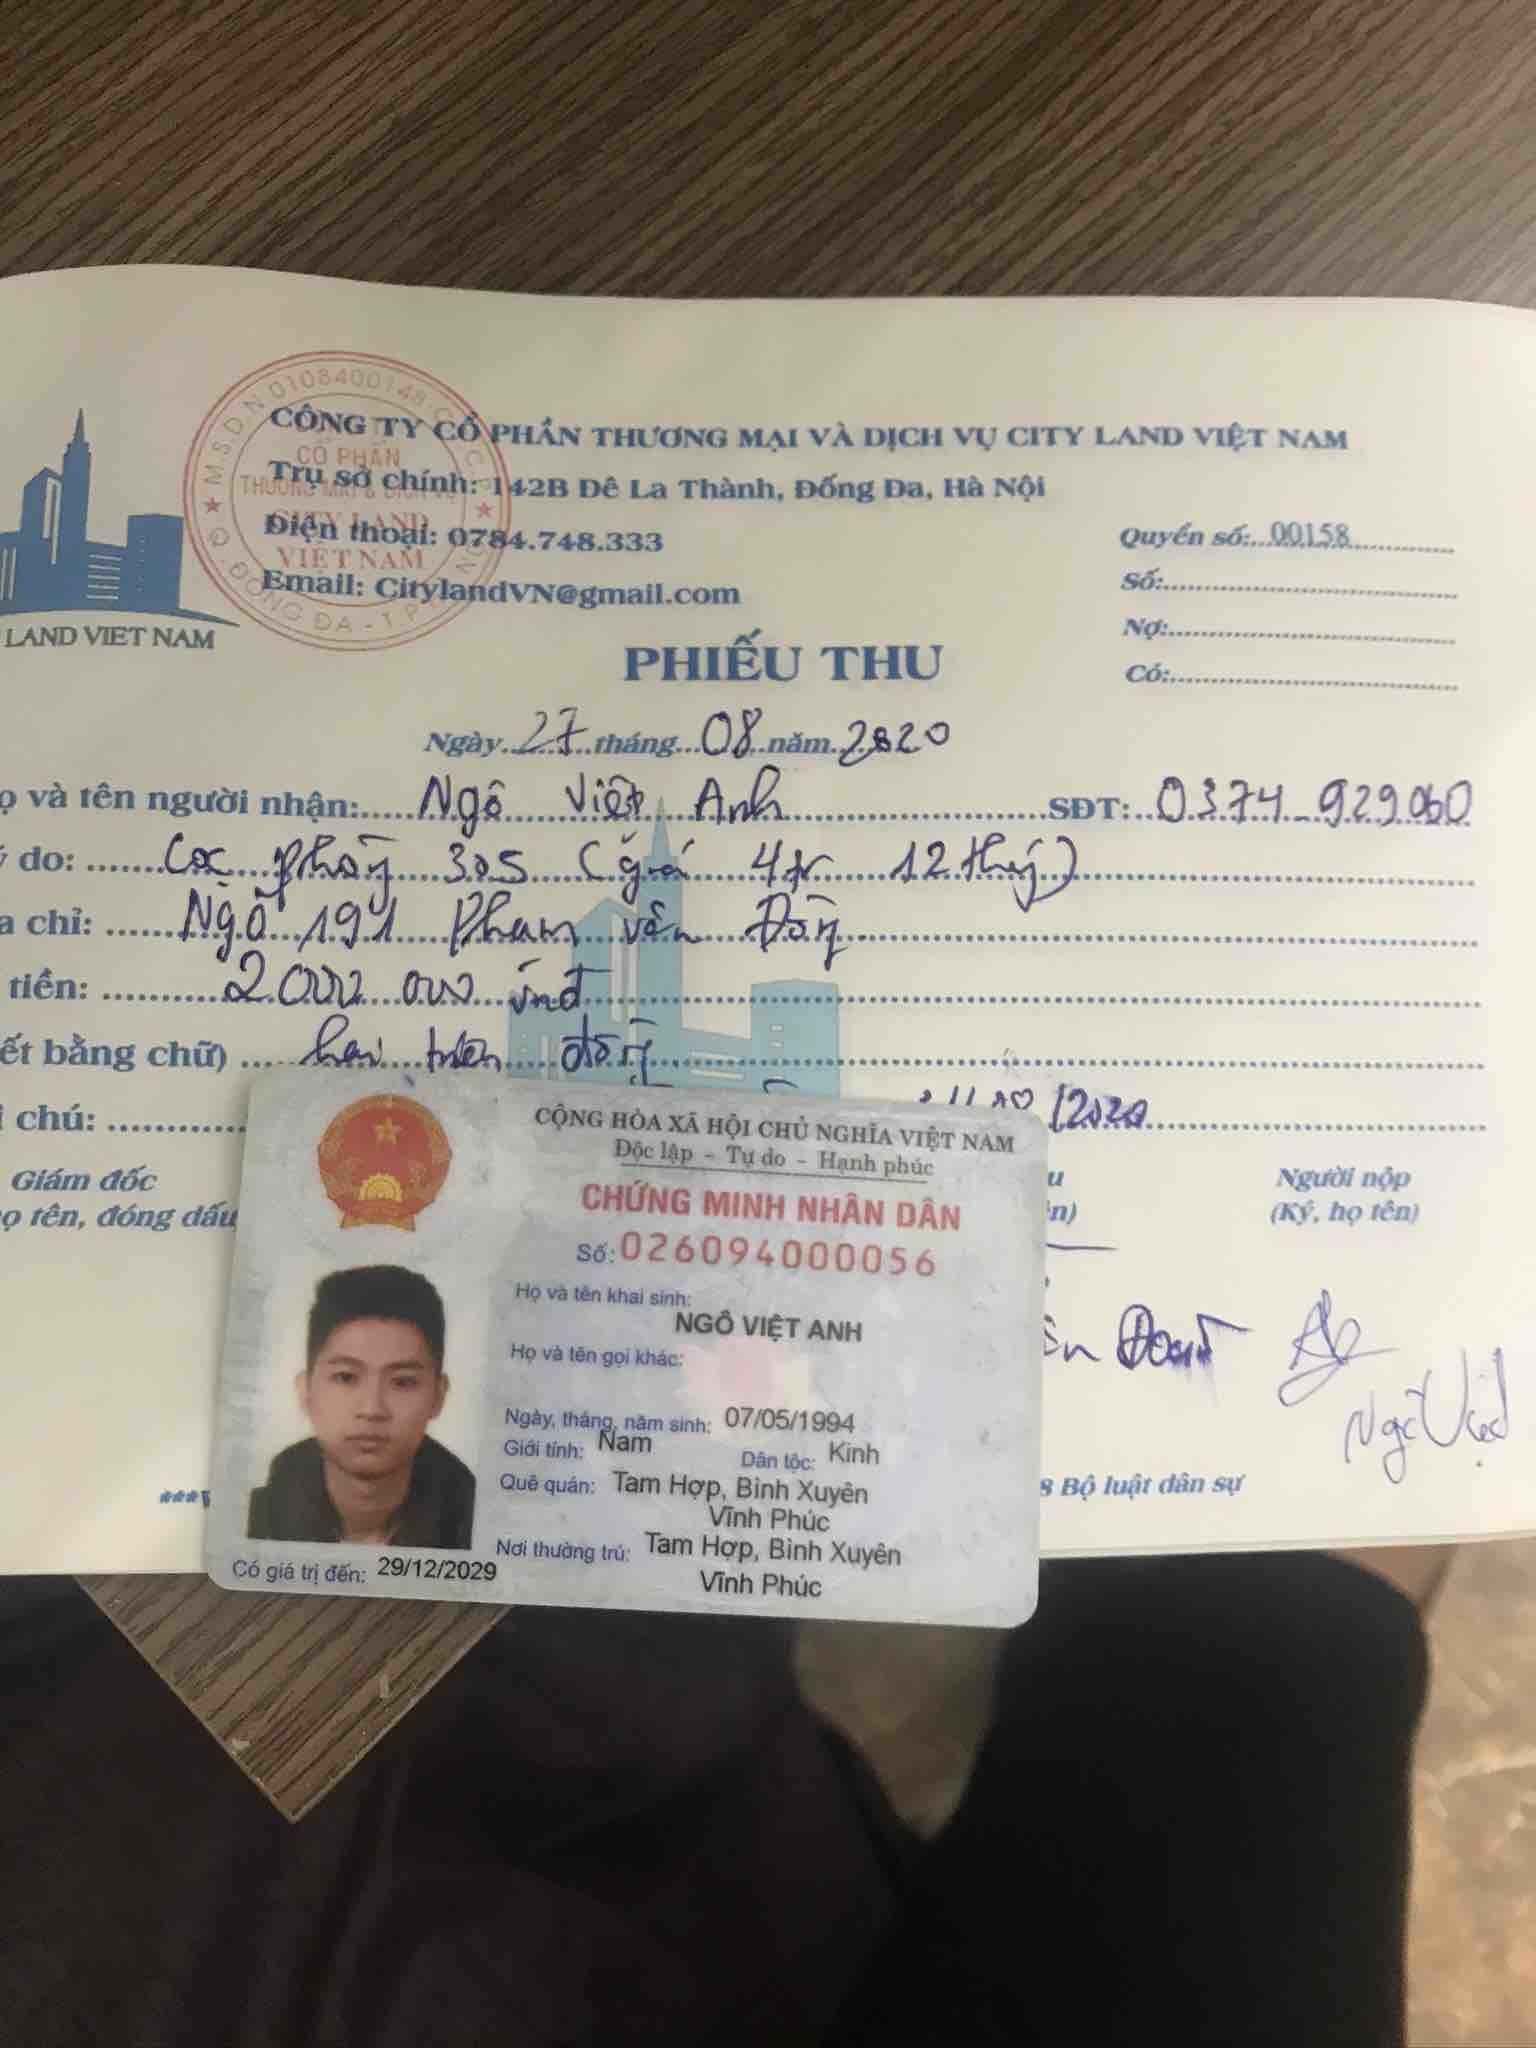 M.S.D.N 0108400148-C.T.C.P
CỔ PHẦN
THƯƠNG MẠI & DỊCH VỤ
CITY LAND
VIỆT NAM
Q. ĐỐNG ĐA - T.P
LAND VIET NAM
CÔNG TY CỔ PHẦN THƯƠNG MẠI VÀ DỊCH VỤ CITY LAND VIỆT NAM
Trụ sở chính: 142B Đê La Thành, Đống Đa, Hà Nội
Điện thoại: 0784.748.333
Email: CitylandVN@gmail.com
Quyển số: 00158
Số:
Nợ:
Có:
PHIẾU THU
Ngày 27 tháng 08 năm 2020
ọ và tên người nhận: Ngô Việt Anh SĐT: 0374 929060
ý do: Cọc phòng 305 (giá 4tr 12 tháng)
a chỉ: Ngõ 191 Phạm Văn Đồng
tiền: 2000 000 vnđ
ết bằng chữ) hai triệu đồng
i chú: /2020
Giám đốc
ọ tên, đóng dấu
u
ên)
Người nộp
(Ký, họ tên)
Ngô Việt
8 Bộ luật dân sự
CỘNG HÒA XÃ HỘI CHỦ NGHĨA VIỆT NAM
Độc lập - Tự do - Hạnh phúc
CHỨNG MINH NHÂN DÂN
Số: 026094000056
Họ và tên khai sinh:
NGÔ VIỆT ANH
Họ và tên gọi khác:
Ngày, tháng, năm sinh: 07/05/1994
Giới tính: Nam Dân tộc: Kinh
Quê quán: Tam Hợp, Bình Xuyên
Vĩnh Phúc
Nơi thường trú: Tam Hợp, Bình Xuyên
Vĩnh Phúc
Có giá trị đến: 29/12/2029